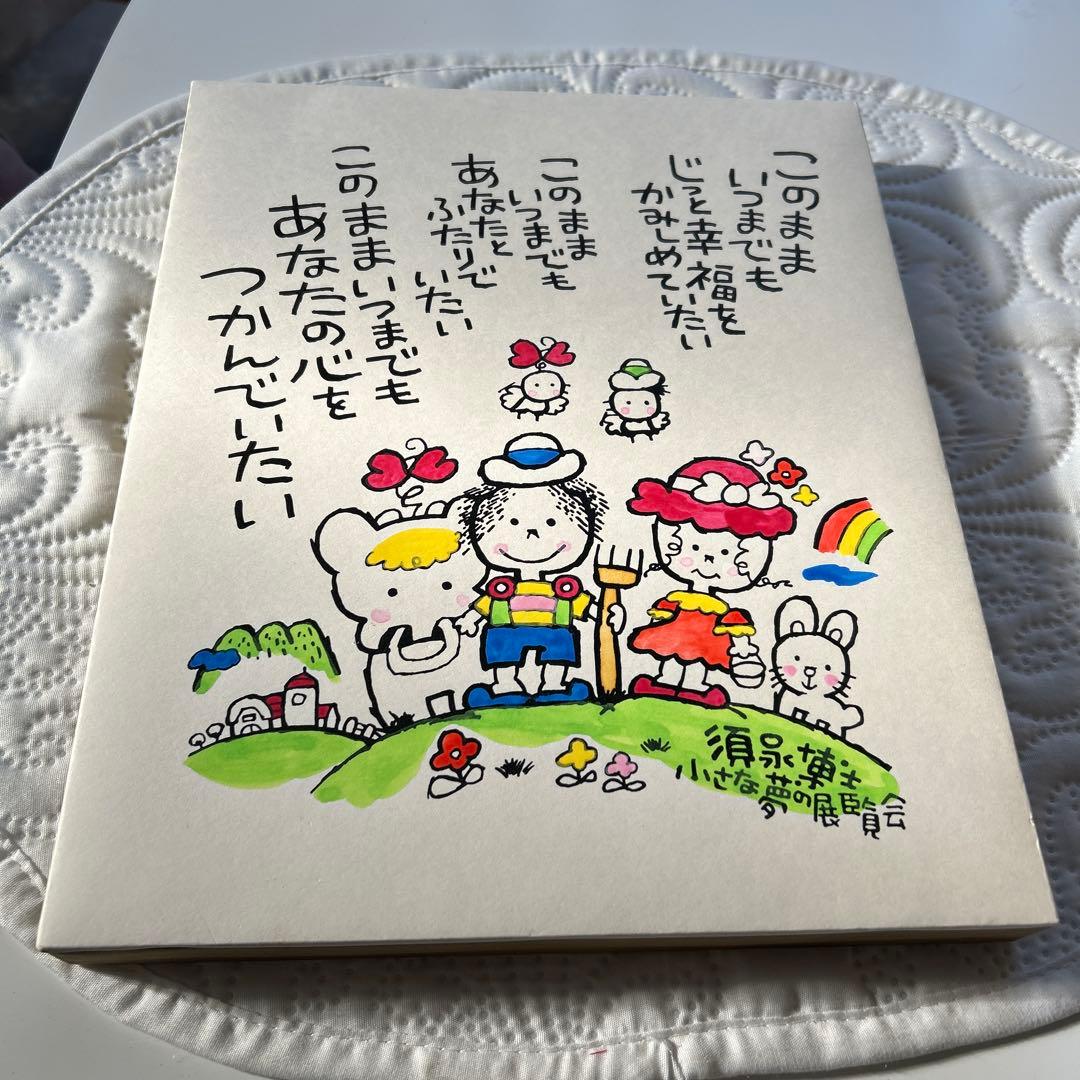 このまま
いつまでも
じっと幸福を
かみしめていたい
このまま
いつまでも
あなたと
ふたりで
いたい
このままいつまでも
あなたの心を
つかんでいたい
須永博士
小さな夢の展覧会